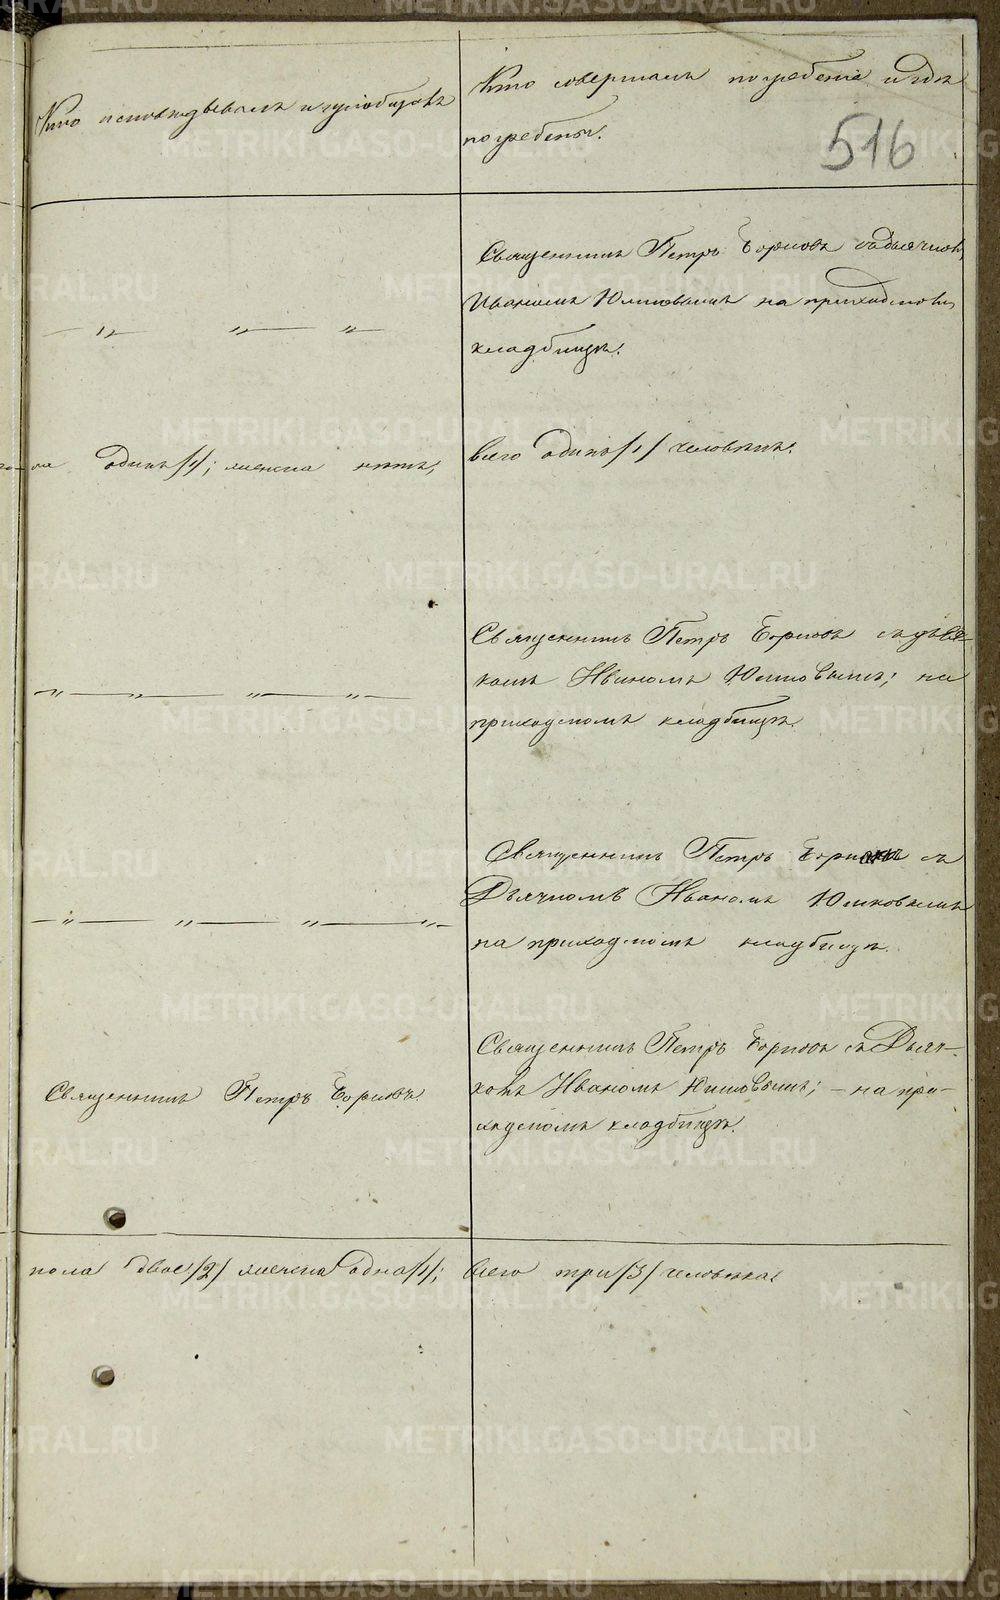 Кто исповѣдывалъ и пріобщалъ
Кто совершалъ погребеніе и гдѣ
погребены.
516
Священникъ Петръ Борисовъ съ дьячкомъ
Иваномъ на приходскомъ
кладбищѣ.
одинъ /1/; женска нѣтъ;
всего одинъ /1/ человѣкъ.
Священникъ Петръ Борисовъ съ дьяч-
комъ Иваномъ на
приходскомъ кладбищѣ.
Священникъ Петръ Борисовъ съ
Дьячкомъ Иваномъ
на приходскомъ кладбищѣ.
Священникъ Петръ Борисовъ.
Священникъ Петръ Борисовъ съ Дьяч-
комъ Иваномъ на при-
ходскомъ кладбищѣ.
пола двое /2/ женска одна /1/;
всего три /3/ человѣка.
METRIKI.GASO-URAL.RU